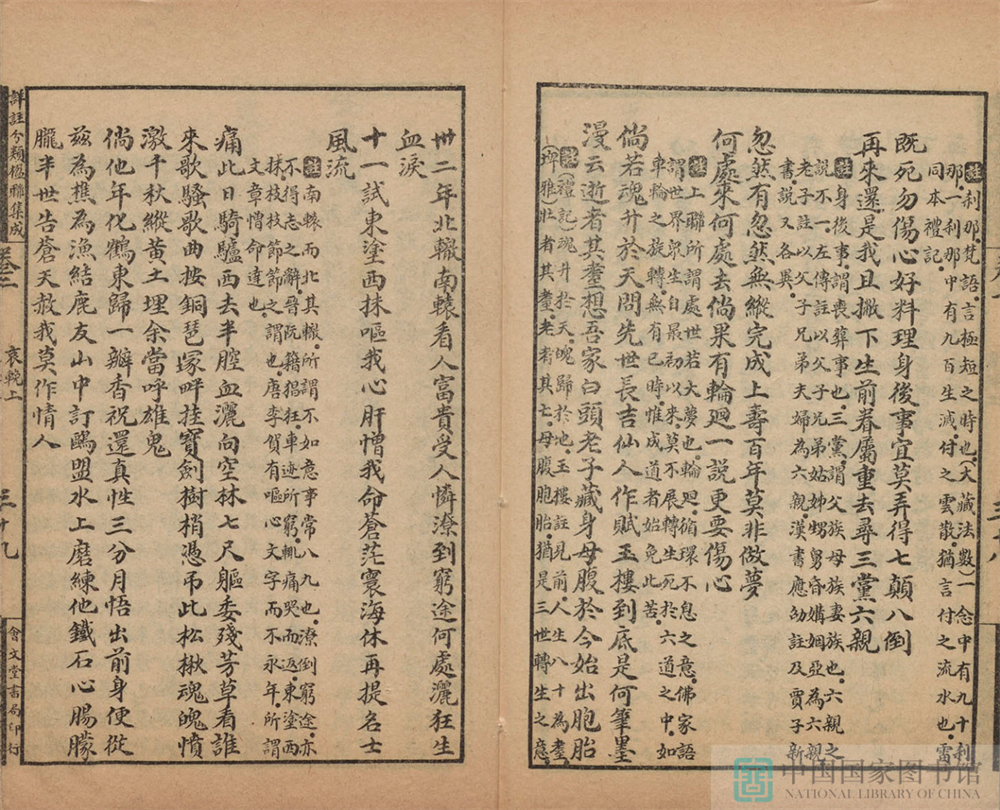 註剎那梵語言極短之時也(大藏法數)一念中有九十剎
那一剎那中有九百生滅付之雲散猶言付之流水也雷
同本禮記
既死勿傷心好料理身後事宜莫弄得七顛八倒
再來還是我且撇下生前眷屬重去尋三黨六親
註身後事謂喪葬事也三黨謂父族母族妻族也六親之
說不一左傳註以父子兄弟姑姊甥舅昏媾姻亞為六親
老子註以父子兄弟夫婦為六親漢書應劭註及賈子新
書說又各異
忽然有忽然無縱完成上壽百年莫非做夢
何處來何處去倘果有輪廻一說更要傷心
註上聯所謂處世若大夢也輪廻循環不息之意佛家語
謂世界眾生自最初以來莫不展轉生死於六道之中如
車輪之旋轉無有已時惟成道者始免此苦
倘若魂升於天問先世長吉仙人作賦玉樓到底是何筆墨
漫云逝者其耋想吾家白頭老子藏身母腹於今始出胞胎
註(禮記)魂升於天魄歸於地玉樓註見前人生八十為耋
(埤雅)壯者其耋老者其亡母腹胞胎猶是三世轉生之意
三十八
卅二年北轍南轅看人富貴受人憐潦到窮途何處灑狂生
血淚
十一試東塗西抹嘔我心肝憎我命蒼茫寰海休再提名士
風流
註南轅而北其轍所謂不如意事常八九也潦倒窮途亦
不得志之辭晉阮籍猖狂車迹所窮輒痛哭而返東塗西
抹枝枝節節之謂也唐李賀有嘔心文字而不永年所謂
文章憎命達也
痛此日騎驢西去半腔血灑向空林七尺軀委殘芳草看誰
來歌騷歌曲按銅琶塚畔挂寶劍樹梢憑吊此松楸魂魄憤
激千秋縱黃土埋余當呼雄鬼
倘他年化鶴東歸一瓣香祝還真性三分月悟出前身便從
茲為樵為漁結鹿友山中訂鷗盟水上磨練他鐵石心腸朦
朧半世告蒼天赦我莫作情人
詳註分類楹聯集成
卷三
哀輓上
三十九
會文堂書局印行
中国国家图书馆
NATIONAL LIBRARY OF CHINA